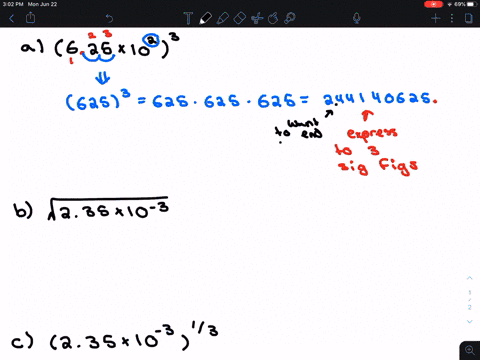 3:02 PM Mon Jun 22
69%
a) (6.25 × 10²)³
1 2 3
⇓
(625)³ = 625 · 625 · 625 = 244140625.
want to end
express to 3 sig figs
b) √2.35 × 10⁻³
c) (2.35 × 10⁻³)^1/3
1
2